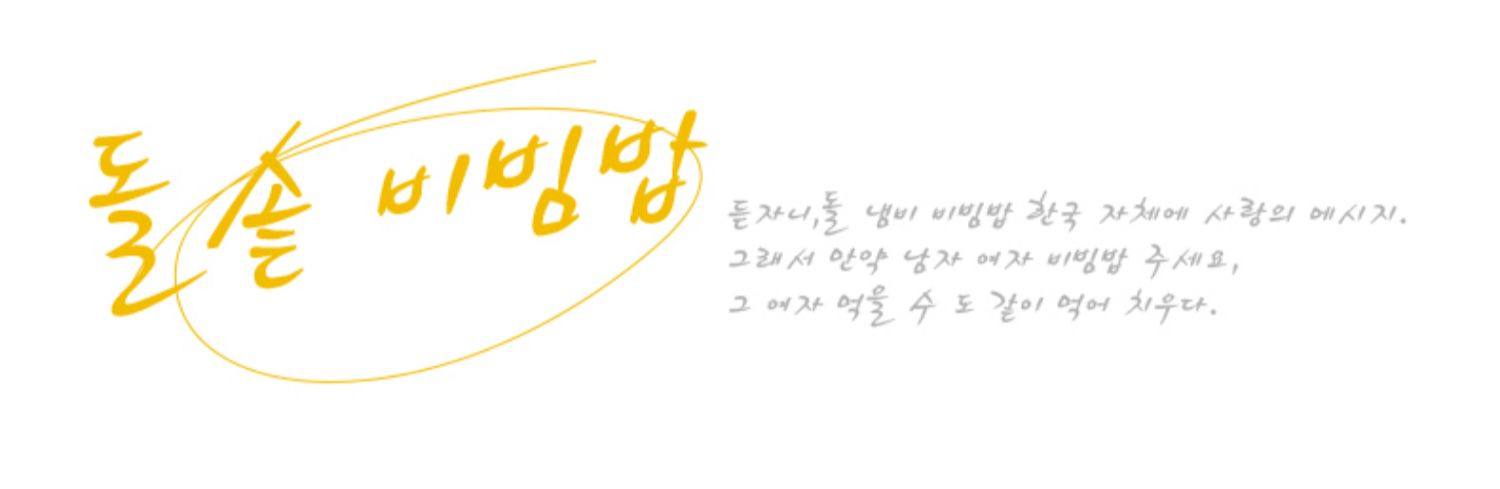 돌솥 비빔밥
듣자니,돌 냄비 비빔밥 한국 자체에 사랑의 메시지.
그래서 만약 남자 여자 비빔밥 주세요,
그 여자 먹을 수 도 같이 먹어 치우다.